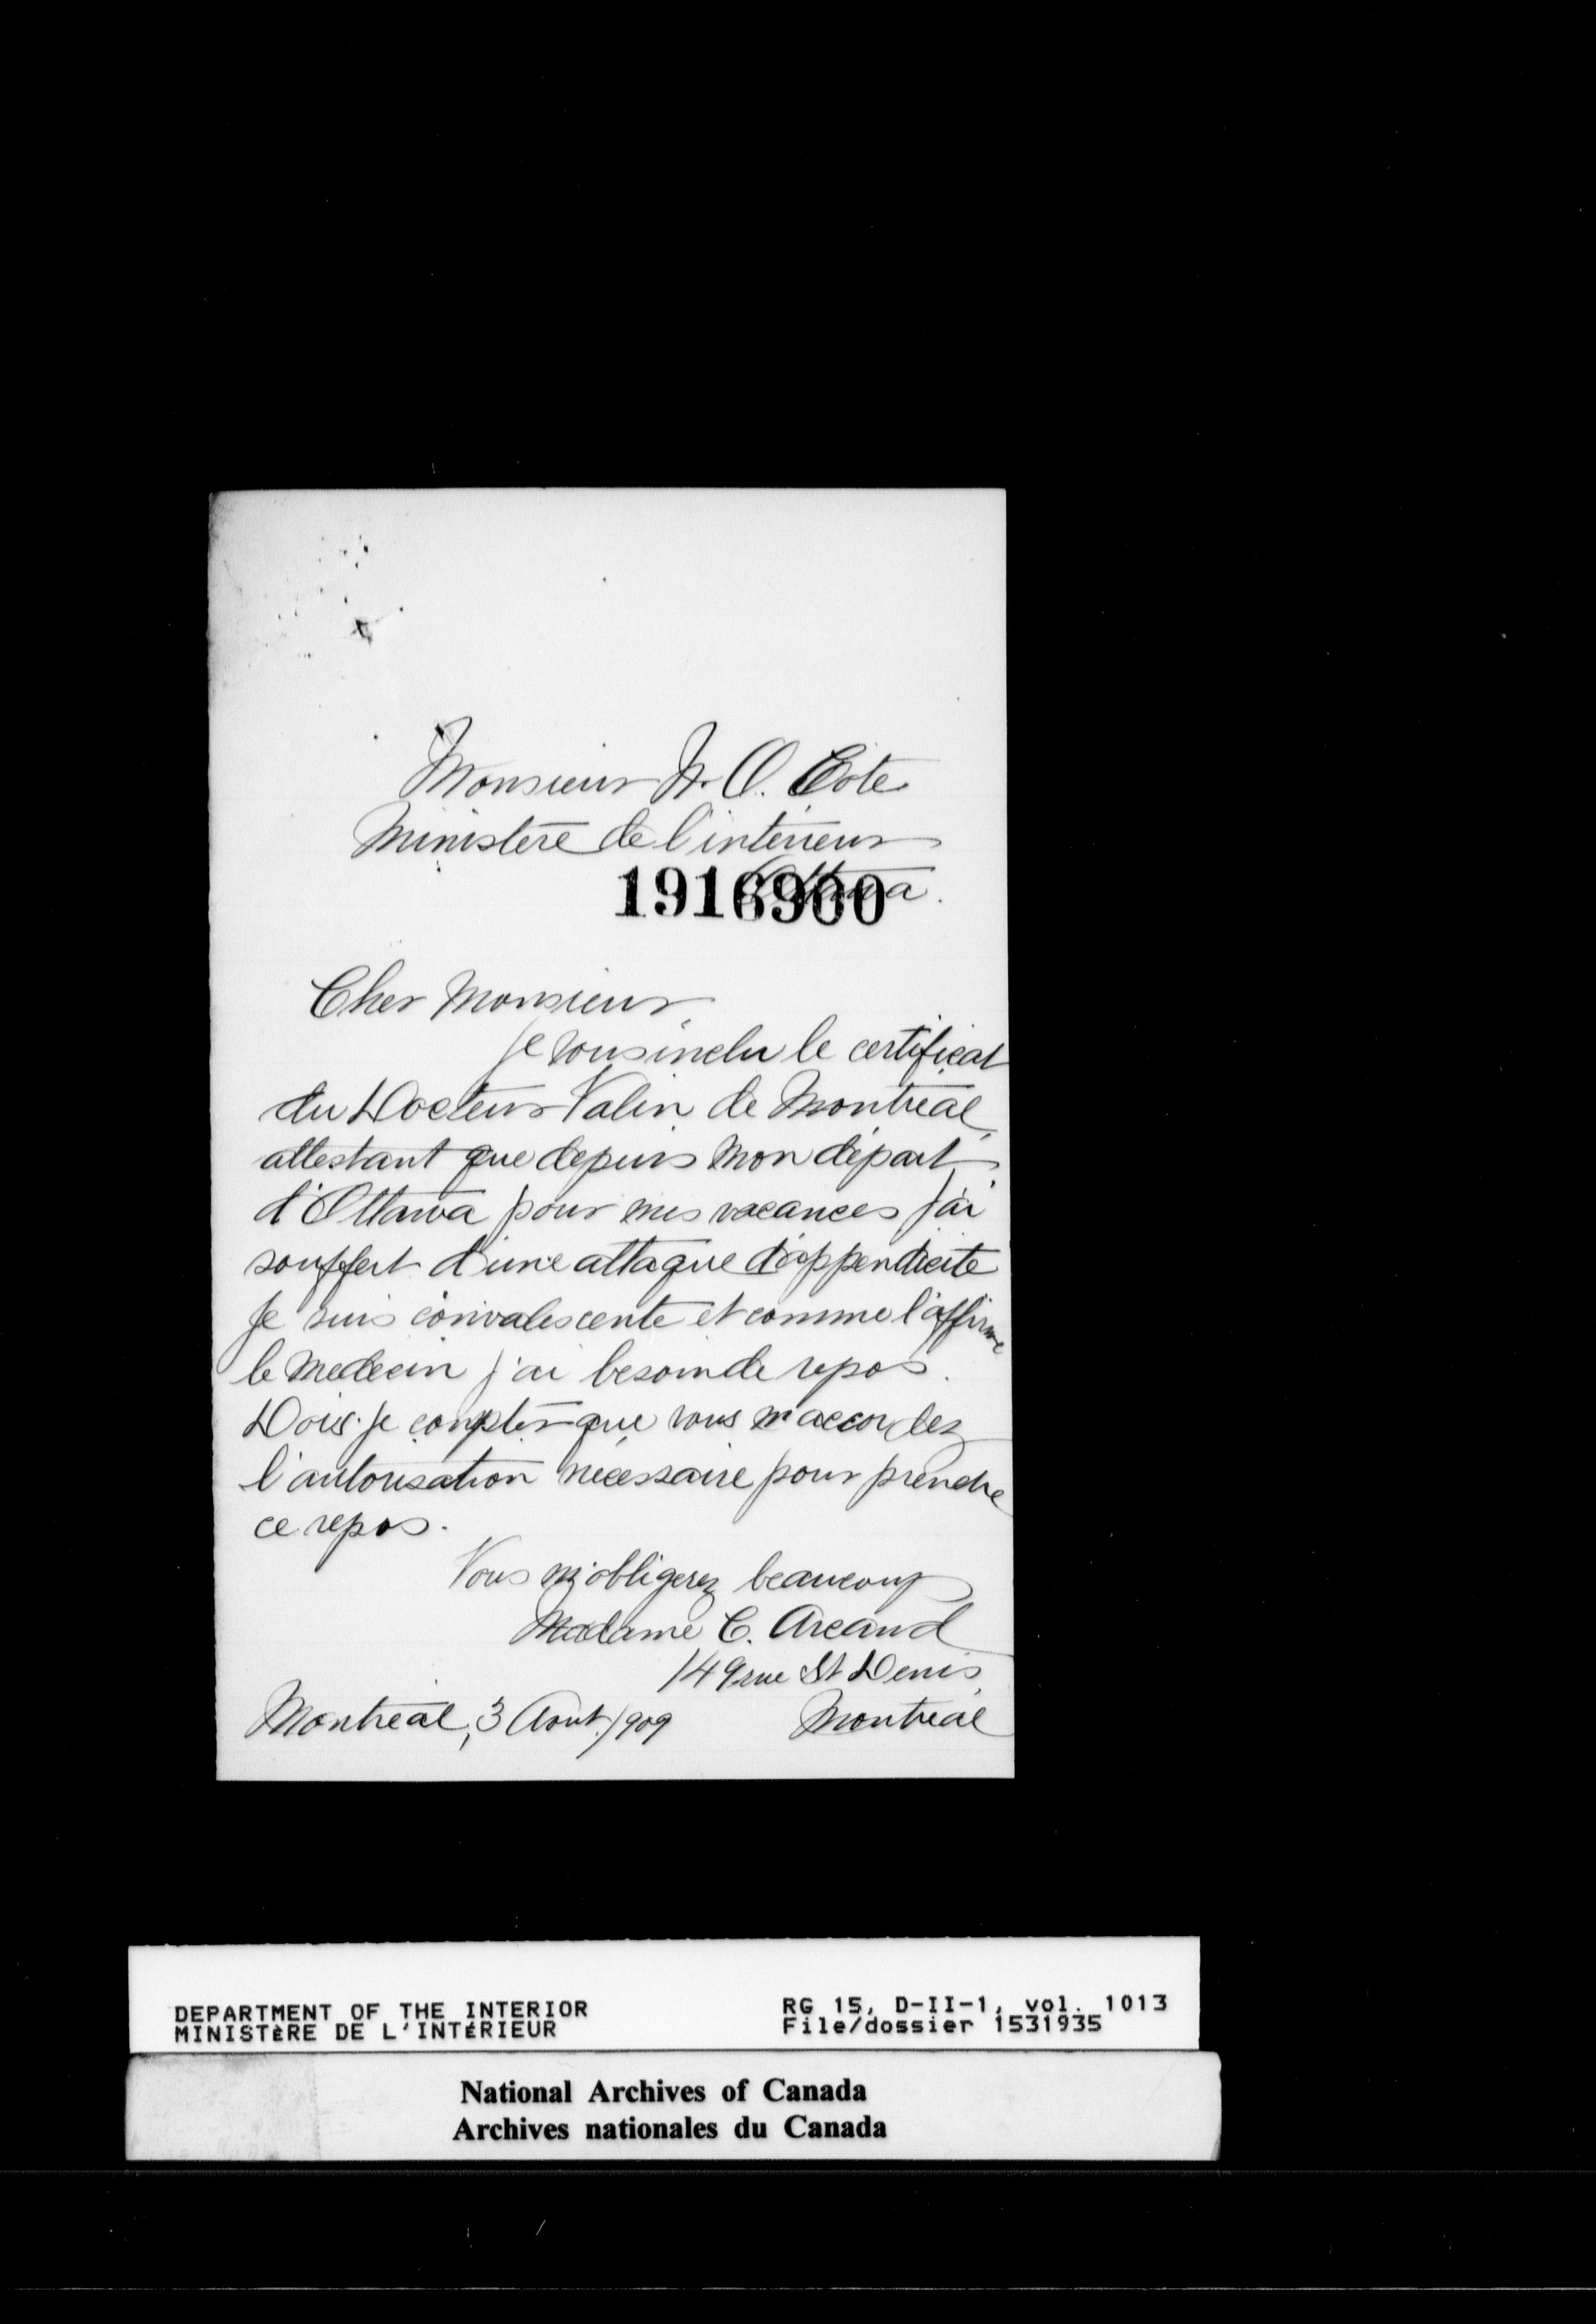 Monsieur N. O. Cote
Ministère de l'intérieur
Ottawa.
1916900
Cher Monsieur,
Je vous inclu le certificat
du Docteur Valin de Montréal,
attestant que depuis mon départ
d'Ottawa pour mes vacances j'ai
souffert d'une attaque d'appendicite
Je suis convalescente et comme l'affirme
le medecin j'ai besoin de repos.
Dois-je compter que vous m'accordez
l'autorisation nécessaire pour prendre
ce repos.
Vous m'obligerez beaucoup
Madame C. Arcand
149 rue St Denis,
Montréal
Montréal, 3 Aout. 1909
DEPARTMENT OF THE INTERIOR
MINISTÈRE DE L'INTÉRIEUR
RG 15, D-II-1, vol. 1013
File/dossier 1531935
National Archives of Canada
Archives nationales du Canada